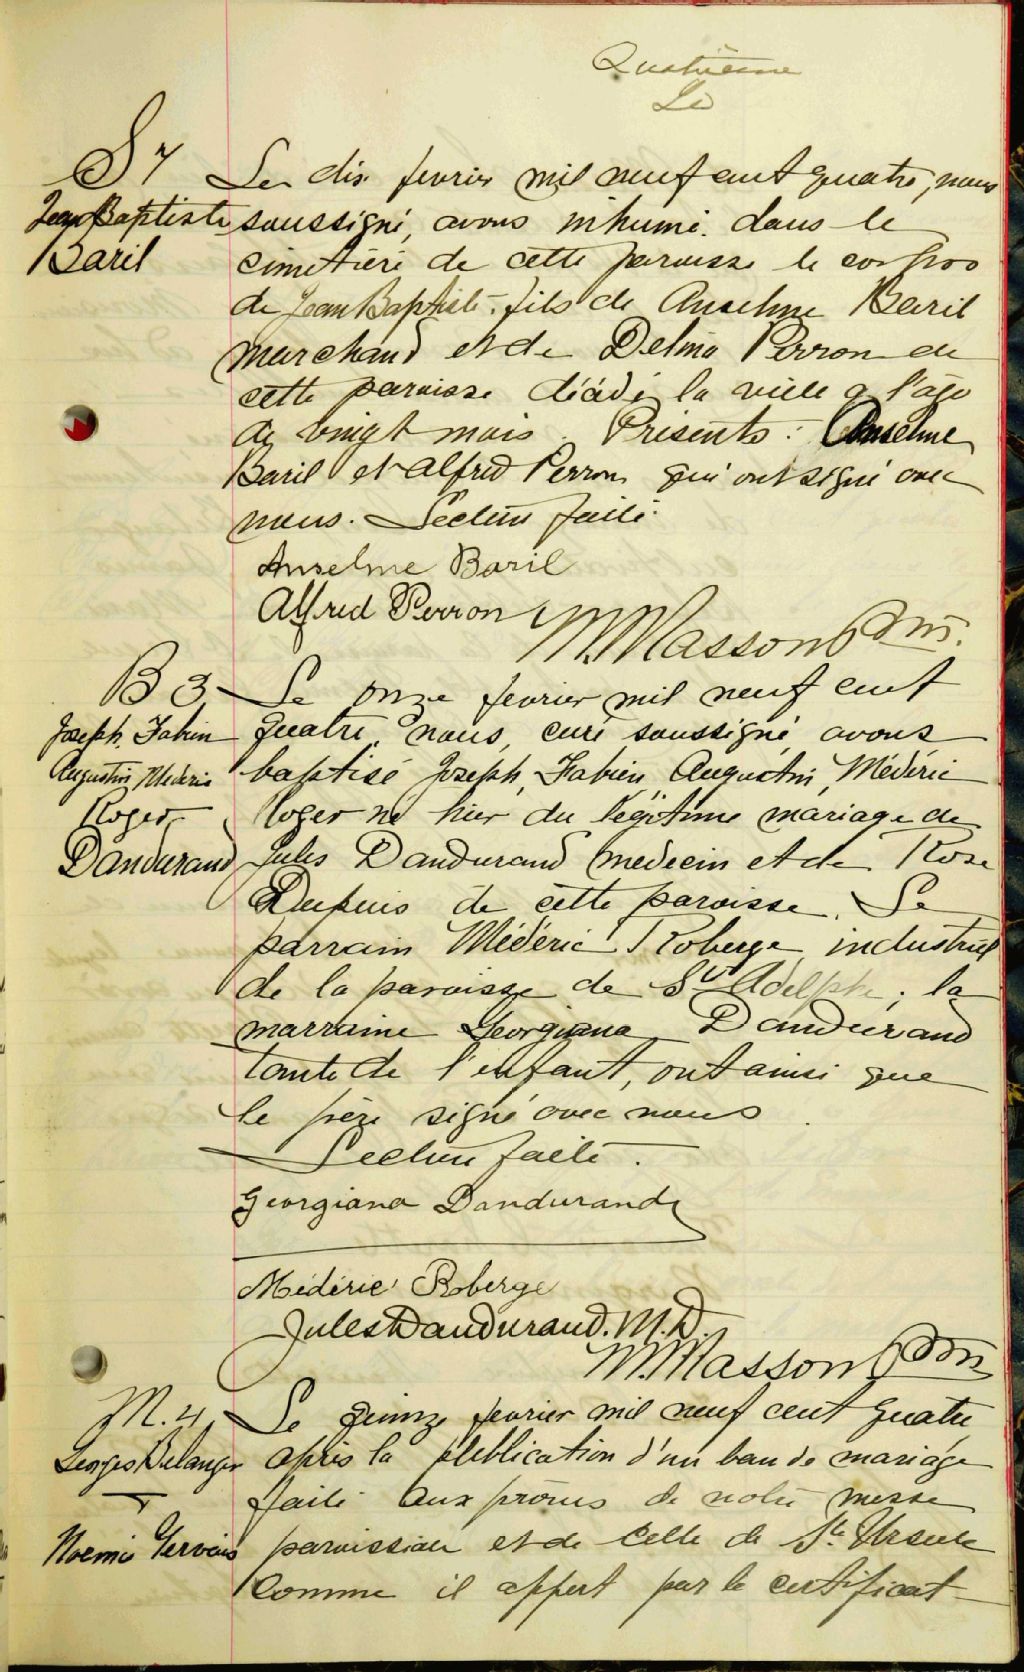 Quatrième
Le
S 7
Jean Baptiste
Baril
Le dix fevrier mil neuf cent quatre, nous
soussigné, avons inhumé dans le
cimetière de cette paroisse le corps
de Jean Baptiste fils de Anselme Baril
marchand et de Delima Perron de
cette paroisse décédé la veille a l'âge
de vingt mois. Présents: Anselme
Baril et Alfred Perron qui ont signé avec
nous. Lecture faite.
Anselme Baril
Alfred Perron
M. Masson
B 3
Joseph, Fabien
Augustin, Médéric
Roger
Dandurand
Le onze fevrier mil neuf cent
quatre, nous, curé soussigné, avons
baptisé Joseph, Fabien, Augustin, Médéric
Roger né hier du légitime mariage de
Jules Dandurand medecin et de Rose
Dupuis de cette paroisse. Le
parrain Médéric Roberge industriel
de la paroisse de St Adelphe; la
marraine Georgiana Dandurand
tante de l'enfant, ont ainsi que
le père signé avec nous
Lecture faite.
Georgiana Dandurand
Médéric Roberge
Jules Dandurand. M.D.
M. Masson
M. 4
Georges Bélanger
Noemie Gervais
Le quinze fevrier mil neuf cent quatre
après la publication d'un ban de mariage
faite aux prônes de notre messe
paroissiale et de celle de Ste Ursule
comme il appert par le certificat